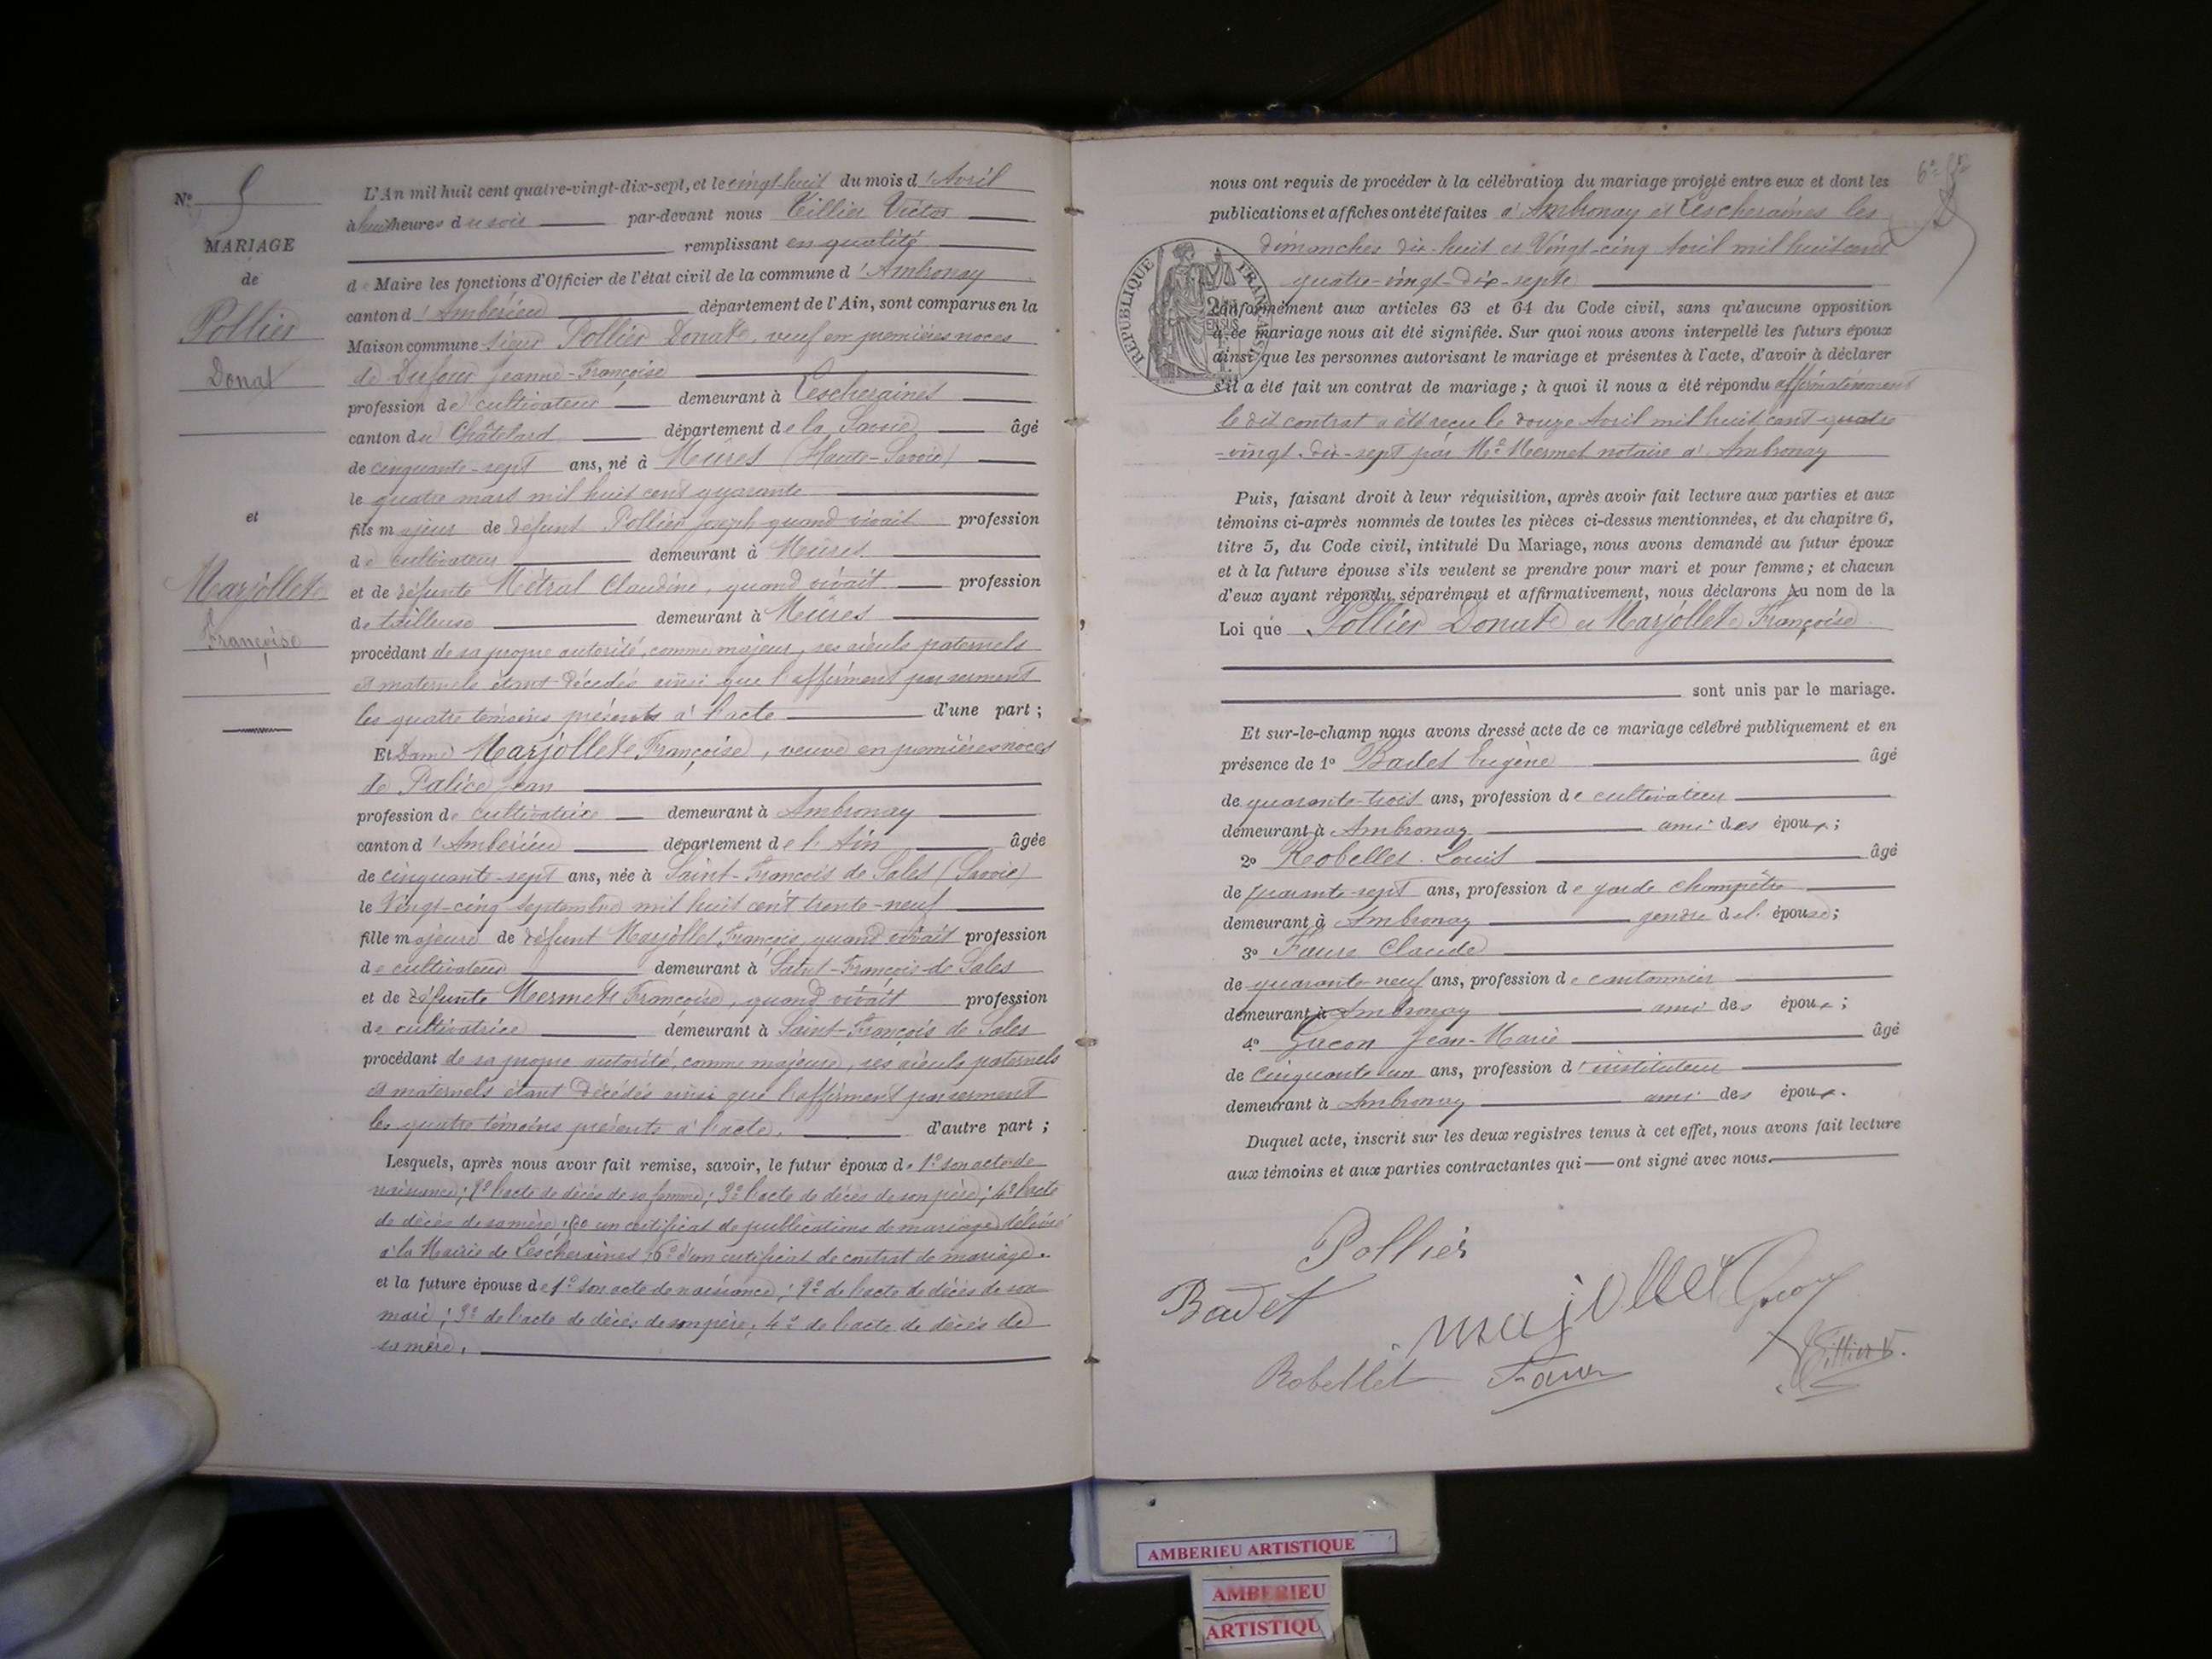 N° 5
MARIAGE
de
Pollier
Donat
et
Marjollet
Françoise
L'An mil huit cent quatre-vingt-dix-sept, et le vingt-huit du mois d'Avril
à huit heures du soir par-devant nous Tillier Victor
remplissant en qualité
de Maire les fonctions d'Officier de l'état civil de la commune d'Ambronay
canton d'Ambérieu département de l'Ain, sont comparus en la
Maison commune sieur Pollier Donat, veuf en premières noces
de Dufour Jeanne-Françoise
profession de cultivateur demeurant à Lescheraines
canton du Châtelard département de la Savoie âgé
de cinquante-sept ans, né à Mûres (Haute-Savoie)
le quatre mars mil huit cent quarante
fils majeur de défunt Pollier Joseph quand vivait profession
de cultivateur demeurant à Mûres
et de défunte Métral Claudine, quand vivait profession
de tailleuse demeurant à Mûres
procédant de sa propre autorité, comme majeur, ses aïeuls paternels
et maternels étant décédés ainsi que l'affirment par serment
les quatre témoins présents à l'acte d'une part ;
Et Dame Marjollet Françoise, veuve en premières noces
de Palice Jean
profession de cultivatrice demeurant à Ambronay
canton d'Ambérieu département de l'Ain âgée
de cinquante-sept ans, née à Saint-François de Sales (Savoie)
le Vingt-cinq septembre mil huit cent trente-neuf
fille majeure de défunt Marjollet François, quand vivait profession
de cultivateur demeurant à Saint-François-de Sales
et de défunte Mermet Françoise, quand vivait profession
de cultivatrice demeurant à Saint-François de Sales
procédant de sa propre autorité, comme majeure, ses aïeuls paternels
et maternels étant décédés ainsi que l'affirment par serment
les quatre témoins présents à l'acte, d'autre part ;
Lesquels, après nous avoir fait remise, savoir, le futur époux de 1° son acte de
naissance ; 2° l'acte de décès de sa femme ; 3° l'acte de décès de son père ; 4° l'acte
de décès de sa mère ; 5° un certificat de publications de mariage délivré
à la Mairie de Lescheraines ; 6° d'un certificat de contrat de mariage.
et la future épouse de 1° son acte de naissance ; 2° de l'acte de décès de son
mari ; 3° de l'acte de décès de son père ; 4° de l'acte de décès de
sa mère.
nous ont requis de procéder à la célébration du mariage projeté entre eux et dont les
publications et affiches ont été faites à Ambronay et Lescheraines les
dimanches dix-huit et Vingt-cinq Avril mil huit cent
quatre-vingt-dix-sept
RÉPUBLIQUE FRANÇAISE
conformément aux articles 63 et 64 du Code civil, sans qu'aucune opposition
à ce mariage nous ait été signifiée. Sur quoi nous avons interpellé les futurs époux
ainsi que les personnes autorisant le mariage et présentes à l'acte, d'avoir à déclarer
s'il a été fait un contrat de mariage ; à quoi il nous a été répondu affirmativement
le dit contrat a été reçu le douze Avril mil huit cent quatre
-vingt-dix-sept par Me Mermet notaire à Ambronay
Puis, faisant droit à leur réquisition, après avoir fait lecture aux parties et aux
témoins ci-après nommés de toutes les pièces ci-dessus mentionnées, et du chapitre 6,
titre 5, du Code civil, intitulé Du Mariage, nous avons demandé au futur époux
et à la future épouse s'ils veulent se prendre pour mari et pour femme ; et chacun
d'eux ayant répondu séparément et affirmativement, nous déclarons Au nom de la
Loi que Pollier Donat et Marjollet Françoise
sont unis par le mariage.
Et sur-le-champ nous avons dressé acte de ce mariage célébré publiquement et en
présence de 1° Badet Eugène âgé
de quarante-trois ans, profession de cultivateur
demeurant à Ambronay ami des époux ;
2° Robellet Louis âgé
de quarante-sept ans, profession de garde champêtre
demeurant à Ambronay gendre de l'épouse ;
3° Faure Claude
de quarante-neuf ans, profession de cantonnier
demeurant à Ambronay ami des époux ;
4° Jean-Marie âgé
de cinquante-un ans, profession d'instituteur
demeurant à Ambronay ami des époux.
Duquel acte, inscrit sur les deux registres tenus à cet effet, nous avons fait lecture
aux témoins et aux parties contractantes qui ont signé avec nous.
Pollier
Badet majollet
Robellet Faure Tillier V.
AMBERIEU ARTISTIQUE
AMBERIEU
ARTISTIQU